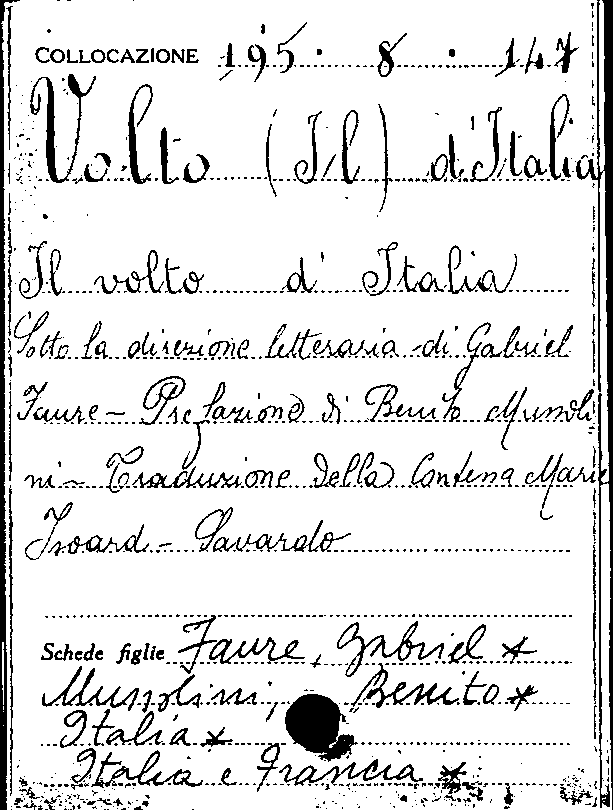 COLLOCAZIONE 195 · 8 · 147
Volto (Il) d'Italia
Il volto d'Italia
Sotto la direzione letteraria di Gabriel
Faure - Prefazione di Benito Mussoli
ni - Traduzione della Contessa Marie
Isoard - Savardo
Schede figlie Faure, Gabriel *
Mussolini, Benito *
Italia *
Italia e Francia *